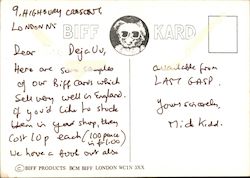 9, HIGHBURY CRESCENT
LONDON N5
BIFF KARD
Dear Deja Vu,
Here are some samples
of our Biff Cards which
sell very well in England.
If you'd like to stock
them in your shop, they
cost 10p each (100 pieces
We have a book out also
available from
LAST GASP.
Yours sincerely,
Mick Kidd.
© BIFF PRODUCTS BCM BIFF LONDON WC1N 3XX